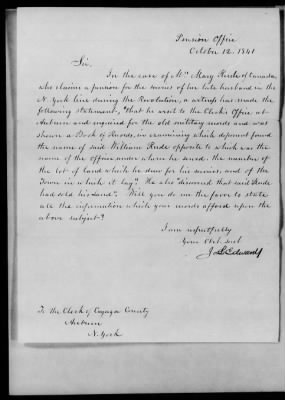 Pension Office
October 12. 1841
Sir.
In the case of Mrs Mary Rude of Canada
who claims a pension for the services of her late husband in the
N. York line during the Revolution, a witness has made the
following statement, "that he went to the Clerk's Office at
Auburn and inquired for the old military records and was
shown a Book of Records, in examining which deponent found the
name of said William Rude opposite to which was the
name of the officer under whom he served. the number of
the lot of land which he drew for his services, and of the
Town in which it lay". He also "discovered that said Rude
had sold his Land". Will you do me the favor to state
all the information which your records afford upon the
above subject?
I am respectfully
Your Obt. Servt
J L Edwards
To the Clerk of Cayuga County
Auburn
N. York